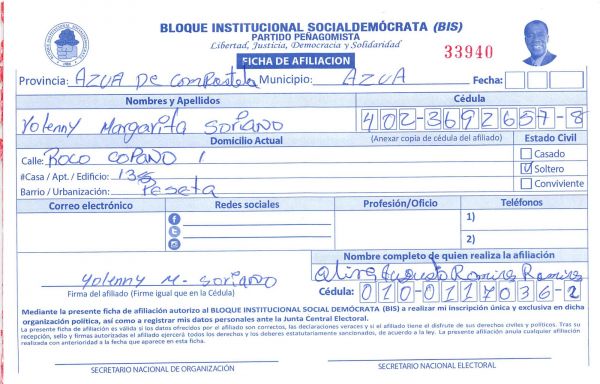 BLOQUE INSTITUCIONAL SOCIALDEMÓCRATA (BIS)
PARTIDO PEÑAGOMISTA
Libertad, Justicia, Democracia y Solidaridad
FICHA DE AFILIACION
33940
Provincia: AZUA De Compostela Municipio: AZUA Fecha:
Nombres y Apellidos Cédula
Yolenny Margarita Soriano 402-3692657-8
Domicilio Actual (Anexar copia de cédula del afiliado) Estado Civil
Calle: 1
Casado
#Casa / Apt. / Edificio: Soltero
Barrio / Urbanización: Peseta Conviviente
Correo electrónico Redes sociales Profesión/Oficio Teléfonos
1)
2)
Nombre completo de quien realiza la afiliación
Yolenny M. Soriano Ramirez Ramirez
Firma del afiliado (Firme igual que en la Cédula) Cédula: 010-0117036-2
Mediante la presente ficha de afiliación autorizo al BLOQUE INSTITUCIONAL SOCIAL DEMÓCRATA (BIS) a realizar mi inscripción única y exclusiva en dicha
organización política, así como a registrar mis datos personales ante la Junta Central Electoral.
La presente ficha de afiliación es válida si los datos ofrecidos por el afiliado son correctos, las declaraciones veraces y si el afiliado tiene el disfrute de sus derechos civiles y políticos. Tras su
recepción, sello y firmas autorizadas el afiliado ejercerá todos los derechos y los deberes estatutariamente sancionados, de acuerdo a la ley. La presente afiliación anula cualquier afiliación
realizada con anterioridad a la fecha que aparece en esta ficha.
SECRETARIO NACIONAL DE ORGANIZACIÓN SECRETARIO NACIONAL ELECTORAL